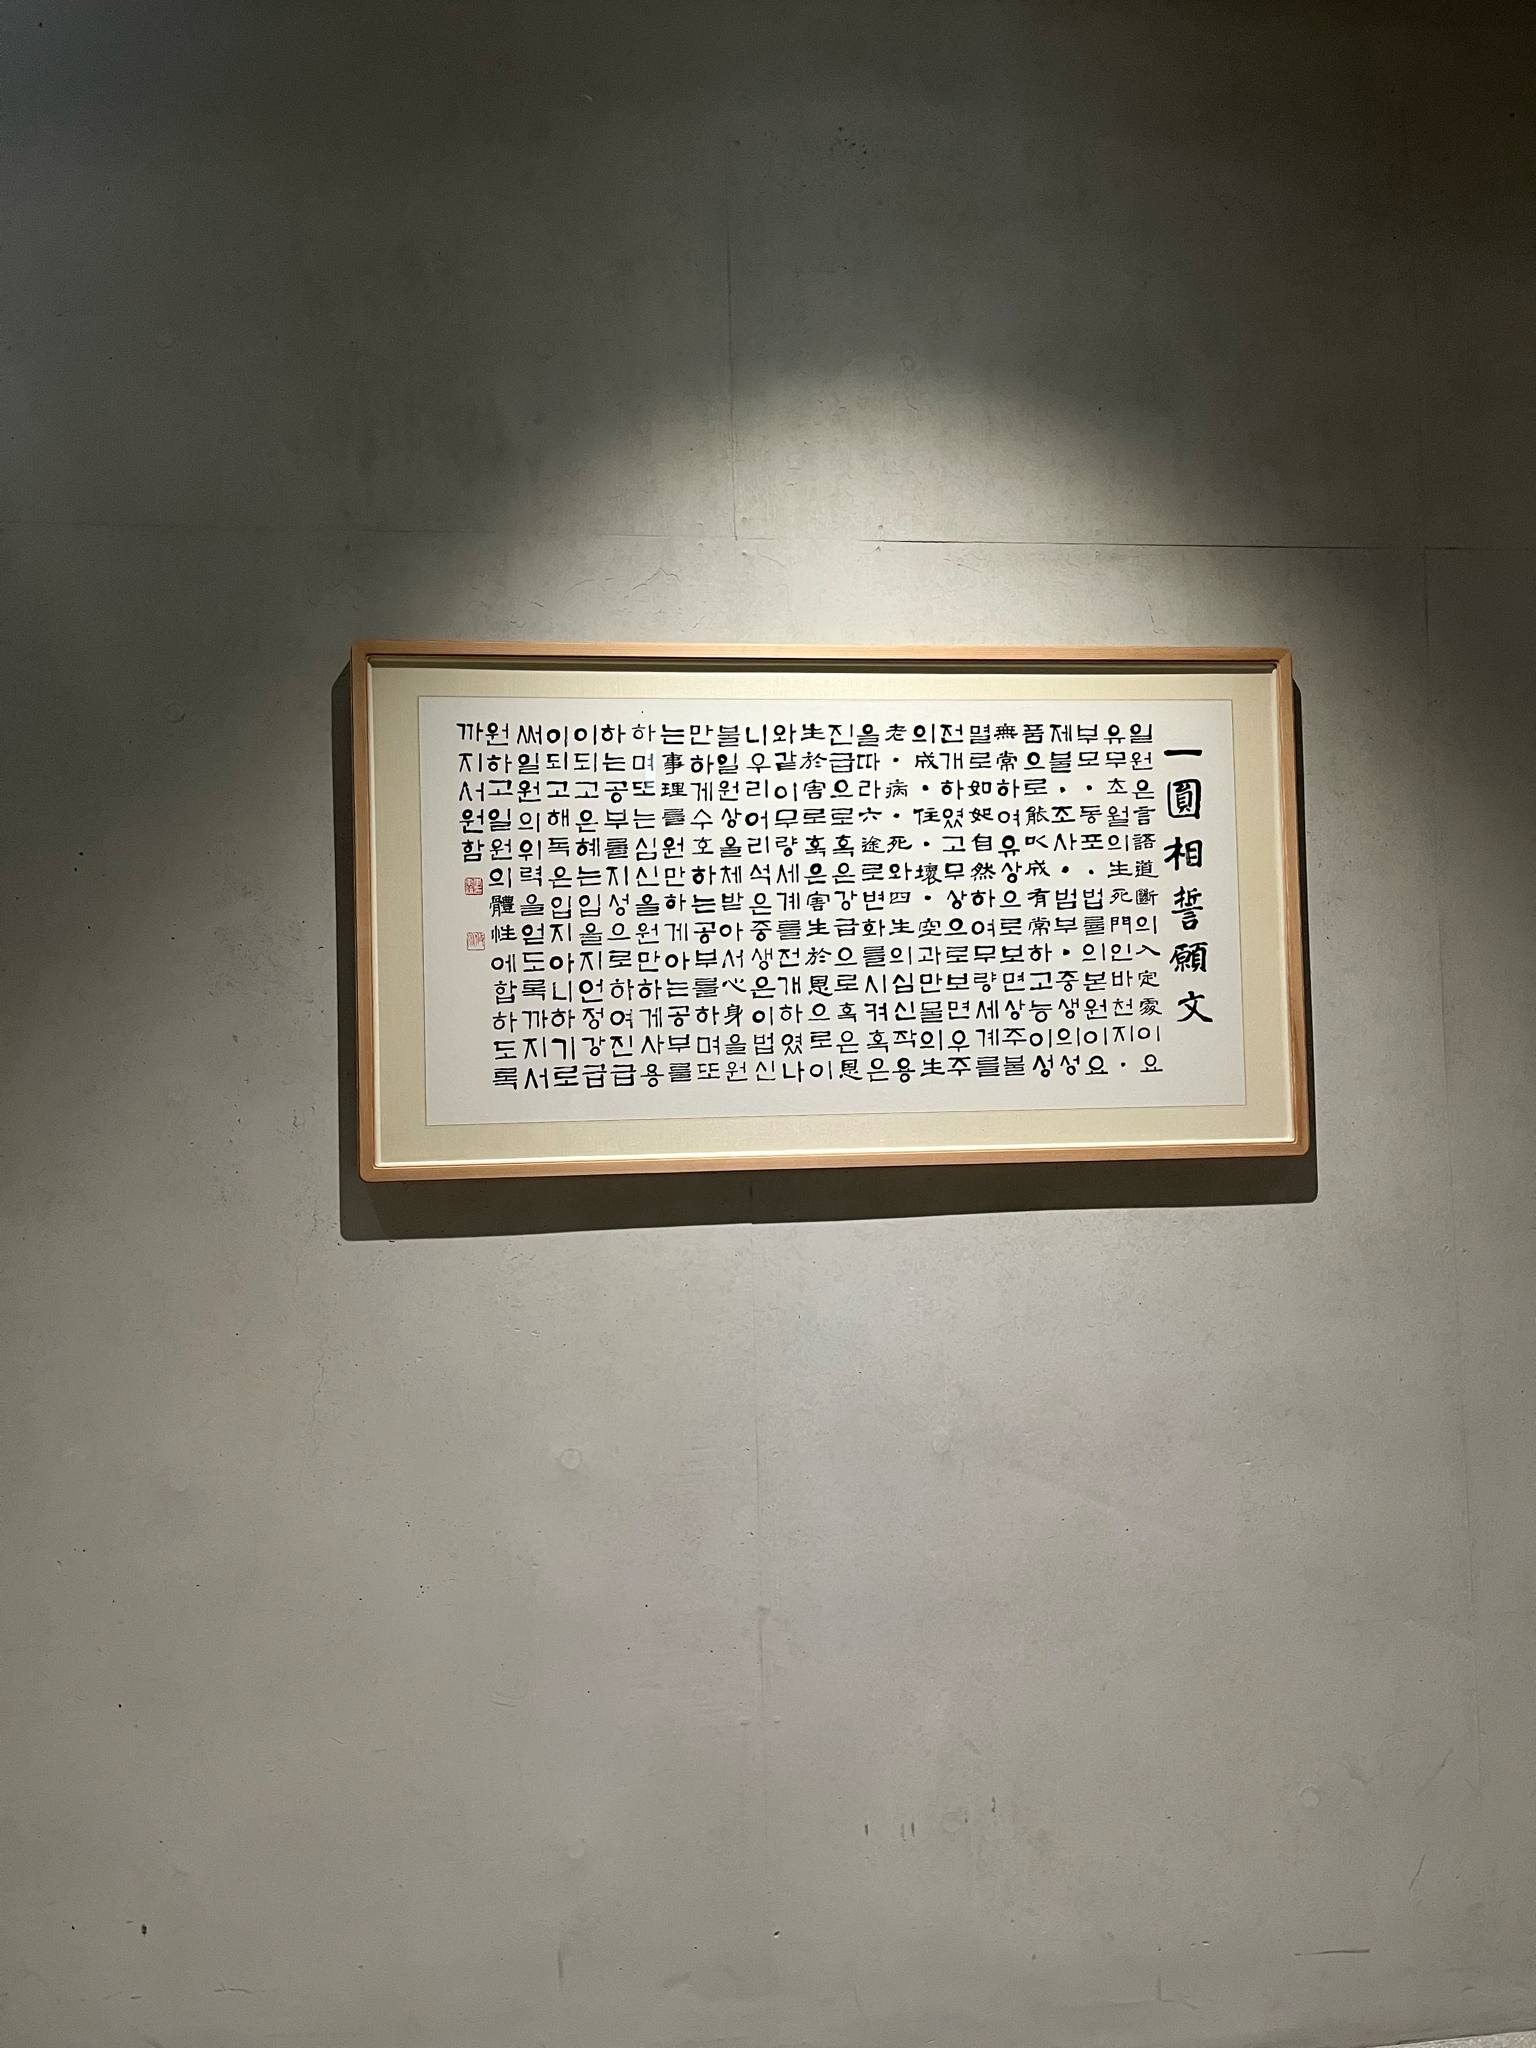 一圓相誓願文
일원은言語道斷의入定處이요
유무초월의生死門인바천지·
부모·동포·법률의본원이요
제불·조사·범부·중생의성
품으로能以成有常하고능이성
無常하여유상으로보면상주불
멸로如如自然하여무량세계를
전개하였고무상으로보면우주
의成·住·壞·空과만물의生
老·病·死와四生의심신작용
을따라六途로변화를시켜혹은
진급으로혹은강급으로혹은恩
生於害로혹은害生於恩으로이
와같이무량세계를전개하였나
니우리어리석은중생은이법신
불일원상을체받아서心身을원
만하게수호하는공부를하며또
는事理를원만하게아는공부를
하며또는심신을원만하게사용
하는공부를지성으로하여진급
이되고은혜는입을지언정강급
이되고해독은입지아니하기로
써일원의위력을얻도록까지서
원하고일원의體性에합하도록
까지서원함